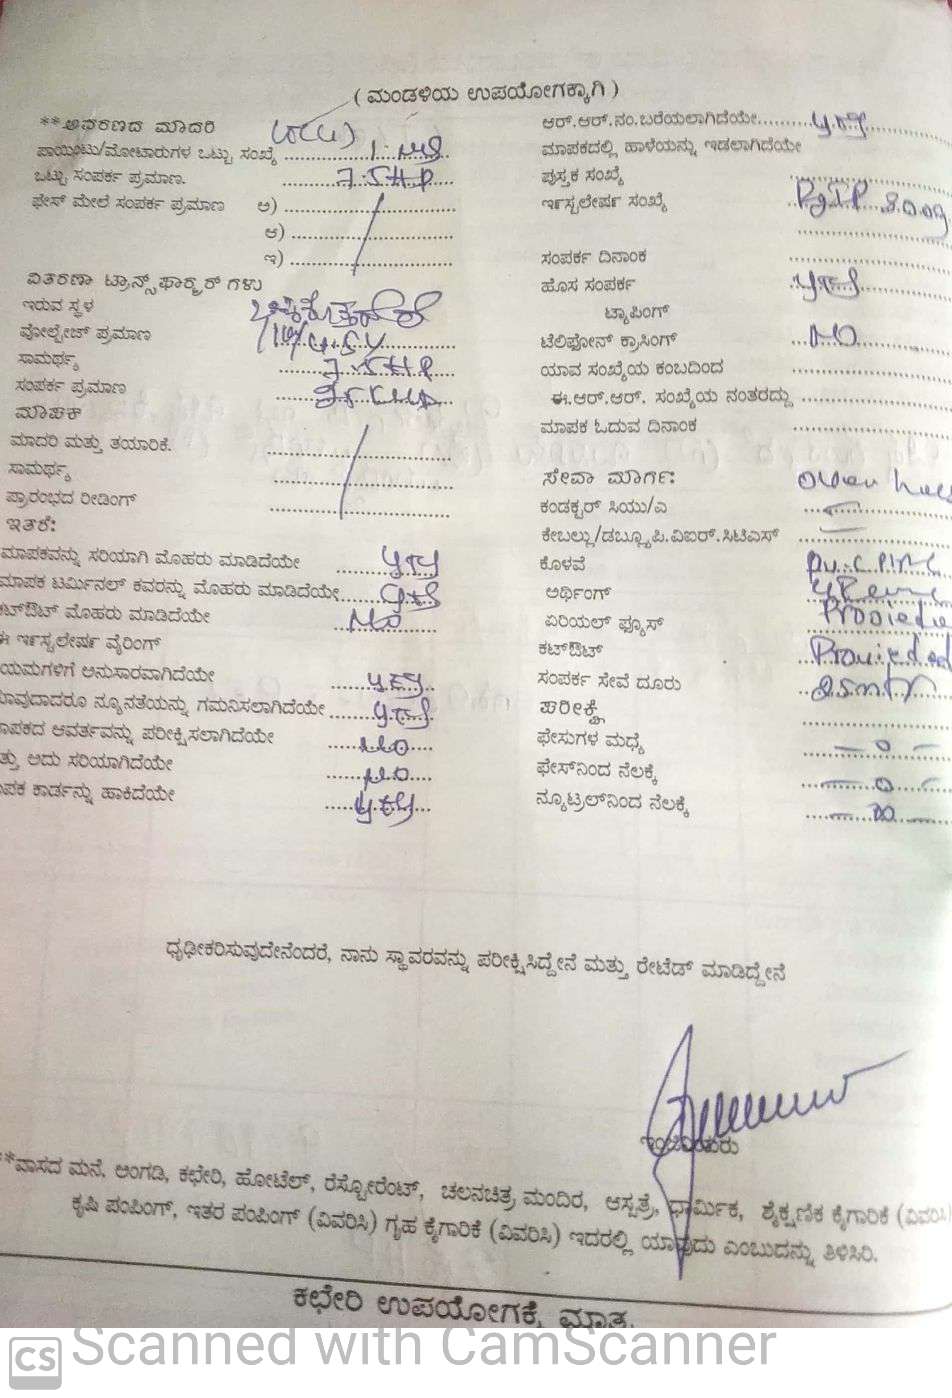 ( ಮಂಡಳಿಯ ಉಪಯೋಗಕ್ಕಾಗಿ )
**ಆವರಣದ ಮಾದರಿ
ಪಾಯಿಂಟು/ಮೋಟಾರುಗಳ ಒಟ್ಟು ಸಂಖ್ಯೆ 1
ಒಟ್ಟು ಸಂಪರ್ಕ ಪ್ರಮಾಣ. 7.5 H.P.
ಫೇಸ್ ಮೇಲೆ ಸಂಪರ್ಕ ಪ್ರಮಾಣ ಅ)
ಆ)
ಇ)
ವಿತರಣಾ ಟ್ರಾನ್ಸ್‌ಫಾರ್ಮರ್ ಗಳು
ಇರುವ ಸ್ಥಳ
ವೋಲ್ಟೇಜ್ ಪ್ರಮಾಣ
ಸಾಮರ್ಥ್ಯ 7.5 H.P.
ಸಂಪರ್ಕ ಪ್ರಮಾಣ
ಮಾಪಕ
ಮಾದರಿ ಮತ್ತು ತಯಾರಿಕೆ.
ಸಾಮರ್ಥ್ಯ
ಪ್ರಾರಂಭದ ರೀಡಿಂಗ್
ಇತರೆ:
ಮಾಪಕವನ್ನು ಸರಿಯಾಗಿ ಮೊಹರು ಮಾಡಿದೆಯೇ yes
ಮಾಪಕ ಟರ್ಮಿನಲ್ ಕವರನ್ನು ಮೊಹರು ಮಾಡಿದೆಯೇ yes
ಕಟ್‌ಔಟ್ ಮೊಹರು ಮಾಡಿದೆಯೇ No
ಈ ಇನ್ಸ್ಟಲೇರ್ಷ ವೈರಿಂಗ್
ಯಮಗಳಿಗೆ ಅನುಸಾರವಾಗಿದೆಯೇ yes
ಾವುದಾದರೂ ನ್ಯೂನತೆಯನ್ನು ಗಮನಿಸಲಾಗಿದೆಯೇ yes
ಾಪಕದ ಆವರ್ತವನ್ನು ಪರೀಕ್ಷಿಸಲಾಗಿದೆಯೇ No
ತ್ತು ಅದು ಸರಿಯಾಗಿದೆಯೇ No
ಾಪಕ ಕಾರ್ಡನ್ನು ಹಾಕಿದೆಯೇ yes
ಆರ್.ಆರ್.ನಂ.ಬರೆಯಲಾಗಿದೆಯೇ yes
ಮಾಪಕದಲ್ಲಿ ಹಾಳೆಯನ್ನು ಇಡಲಾಗಿದೆಯೇ
ಪುಸ್ತಕ ಸಂಖ್ಯೆ
ಇನ್ಸ್ಟಲೇರ್ಷ ಸಂಖ್ಯೆ
ಸಂಪರ್ಕ ದಿನಾಂಕ
ಹೊಸ ಸಂಪರ್ಕ yes
ಟ್ಯಾಪಿಂಗ್
ಟೆಲಿಫೋನ್ ಕ್ರಾಸಿಂಗ್ No
ಯಾವ ಸಂಖ್ಯೆಯ ಕಂಬದಿಂದ
ಈ.ಆರ್.ಆರ್. ಸಂಖ್ಯೆಯ ನಂತರದ್ದು
ಮಾಪಕ ಓದುವ ದಿನಾಂಕ
ಸೇವಾ ಮಾರ್ಗ:
ಕಂಡಕ್ಟರ್ ಸಿಯು/ಎ
ಕೇಬಲ್ಲು/ಡಬ್ಲ್ಯೂ.ಪಿ.ವಿಐರ್.ಸಿಟಿಎಸ್
ಕೊಳವೆ
ಅರ್ಥಿಂಗ್
ಏರಿಯಲ್ ಫ್ಯೂಸ್
ಕಟ್‌ಔಟ್ Provided
ಸಂಪರ್ಕ ಸೇವೆ ದೂರು
ಪರೀಕ್ಷೆ
ಫೇಸುಗಳ ಮಧ್ಯೆ
ಫೇಸ್‌ನಿಂದ ನೆಲಕ್ಕೆ
ನ್ಯೂಟ್ರಲ್‌ನಿಂದ ನೆಲಕ್ಕೆ
ಧೃಢೀಕರಿಸುವುದೇನೆಂದರೆ, ನಾನು ಸ್ಥಾವರವನ್ನು ಪರೀಕ್ಷಿಸಿದ್ದೇನೆ ಮತ್ತು ರೇಟೆಡ್ ಮಾಡಿದ್ದೇನೆ
**ವಾಸದ ಮನೆ, ಅಂಗಡಿ, ಕಛೇರಿ, ಹೋಟೆಲ್, ರೆಸ್ಟೋರೆಂಟ್, ಚಲನಚಿತ್ರ ಮಂದಿರ, ಆಸ್ಪತ್ರೆ, ಧಾರ್ಮಿಕ, ಶೈಕ್ಷಣಿಕ ಕೈಗಾರಿಕೆ (ವಿವರಿಸಿ
ಕೃಷಿ ಪಂಪಿಂಗ್, ಇತರ ಪಂಪಿಂಗ್ (ವಿವರಿಸಿ) ಗೃಹ ಕೈಗಾರಿಕೆ (ವಿವರಿಸಿ) ಇದರಲ್ಲಿ ಯಾವುದು ಎಂಬುದನ್ನು ತಿಳಿಸಿರಿ.
ಕಛೇರಿ ಉಪಯೋಗಕ್ಕೆ ಮಾತ್ರ.
CS Scanned with CamScanner